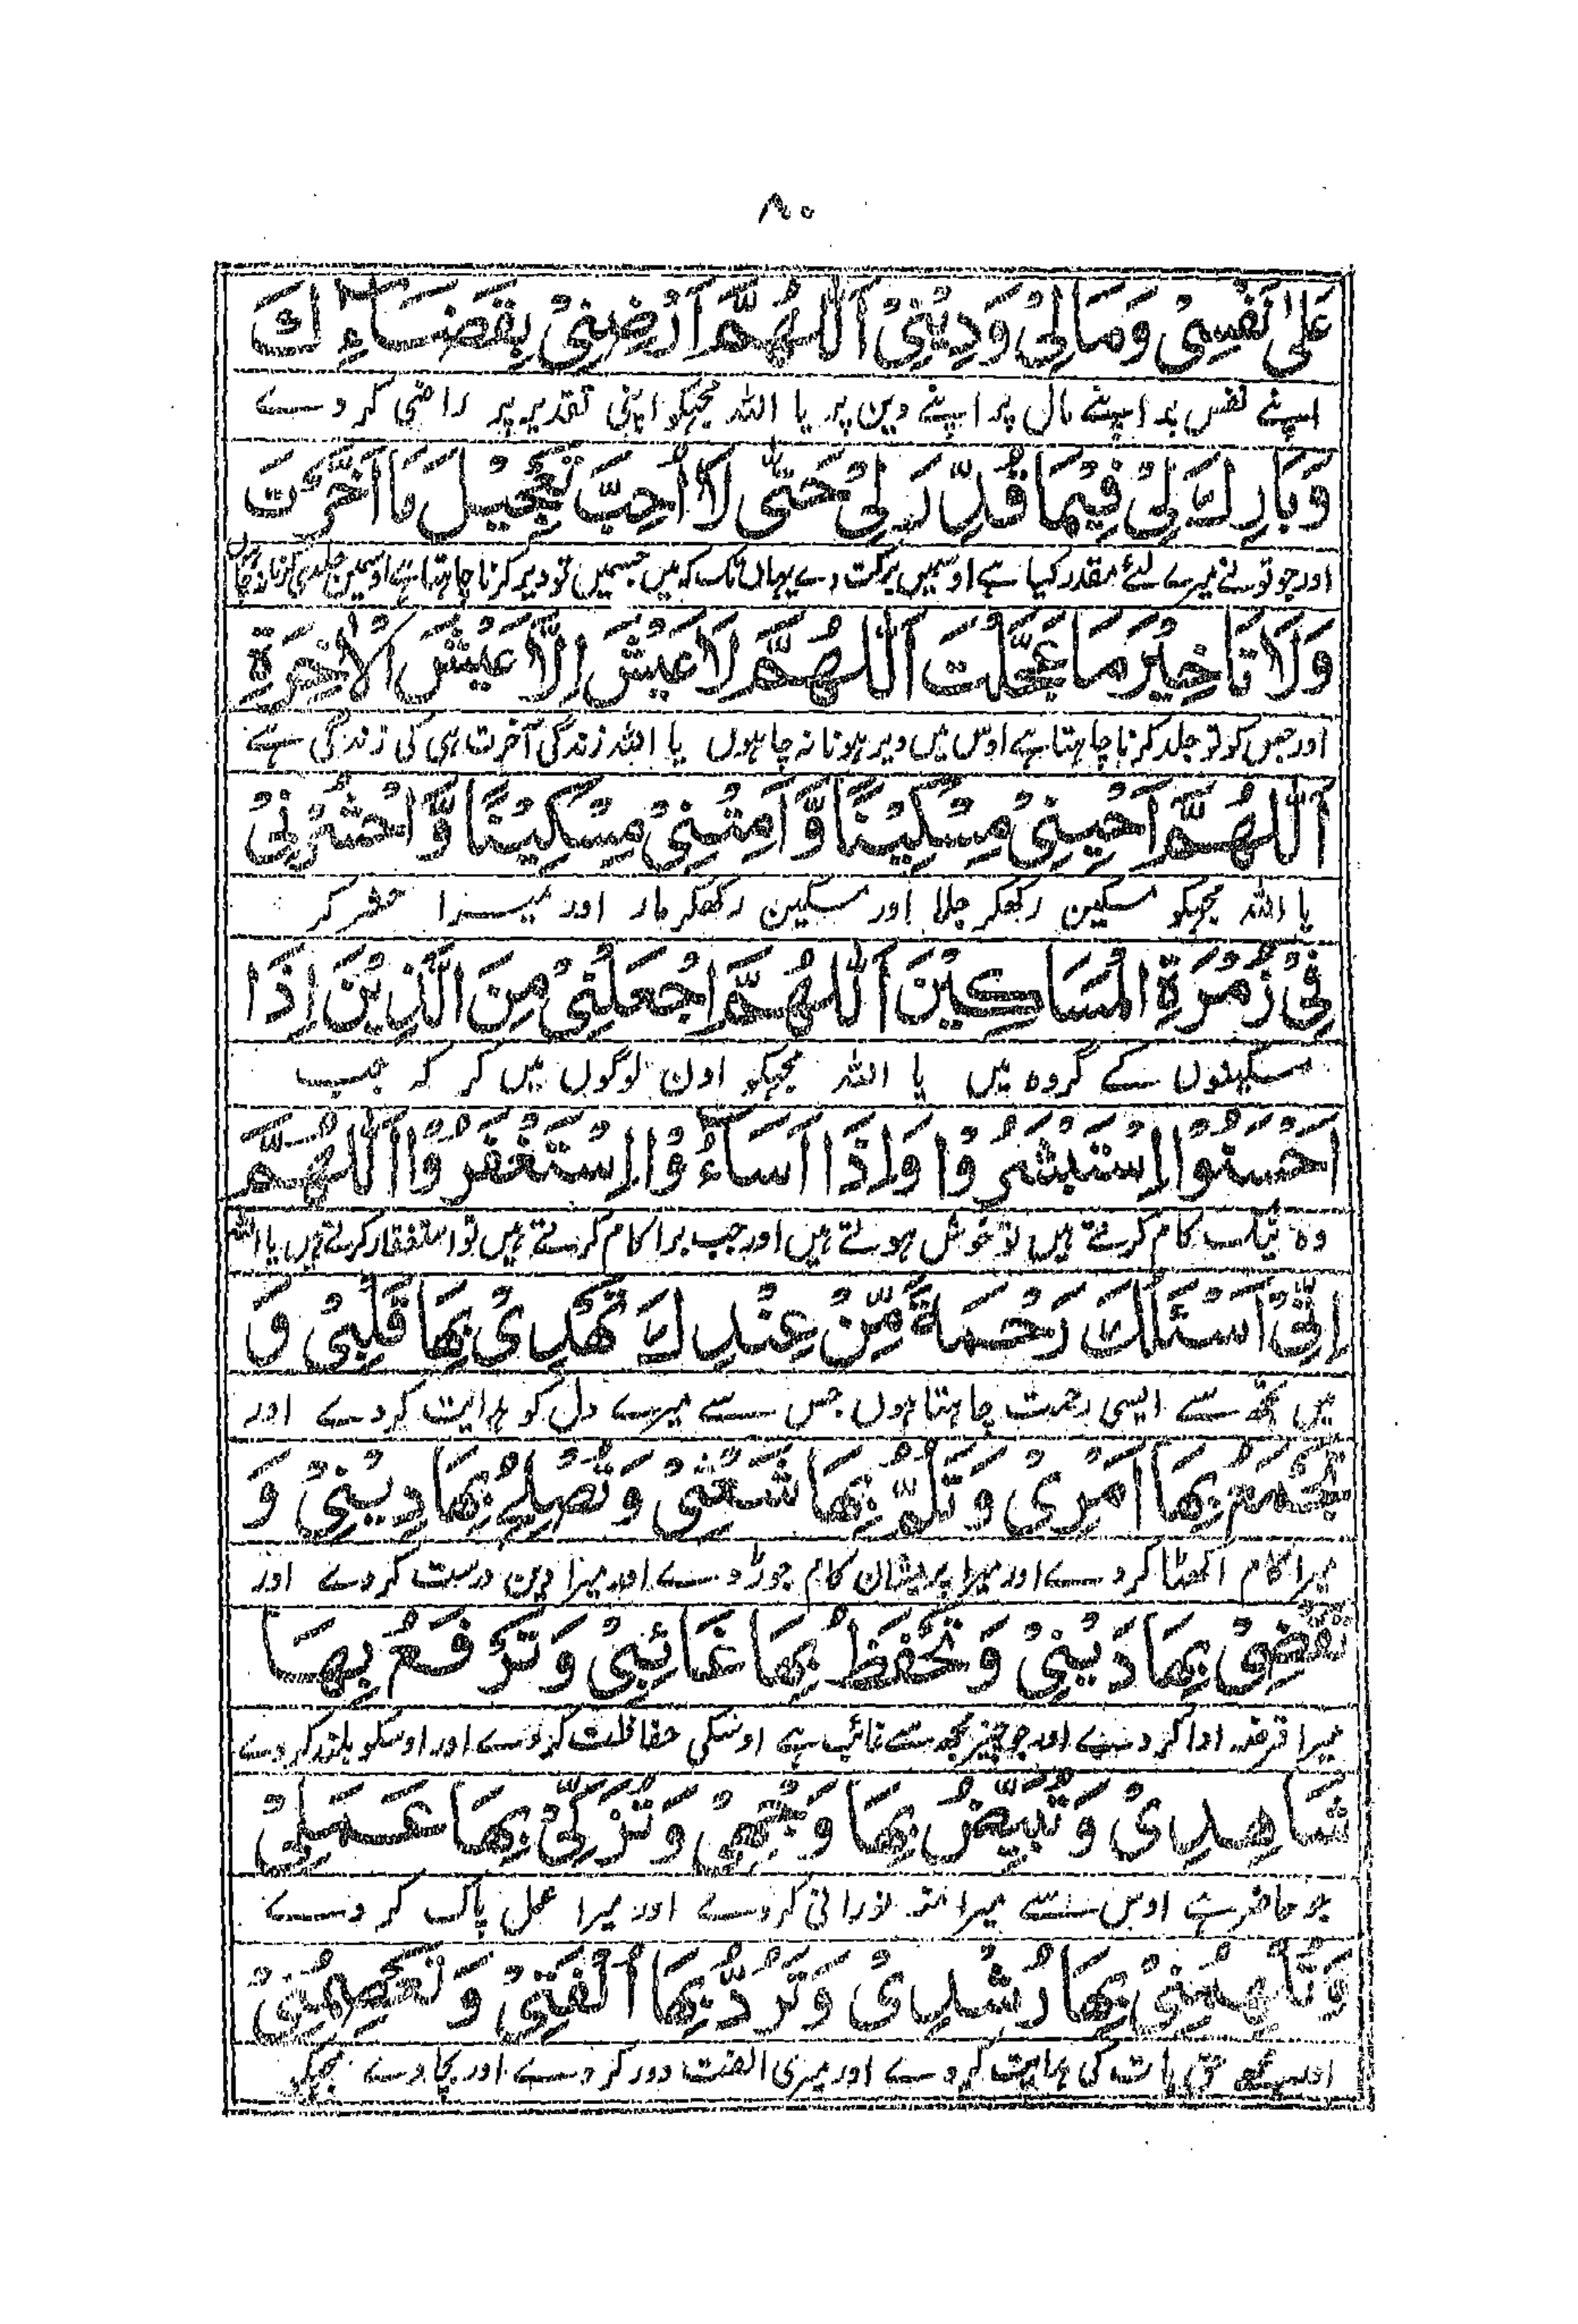 ۸۰
عَلٰی نَفْسِیْ وَمَالِیْ وَدِیْنِیْ اَللّٰهُمَّ اَرْضِنِیْ بِقَضَآءِكَ
اپنے نفس پر اپنے مال پر اپنے دین پر یا اللہ مجہکو اپنی تقدیر پر راضی کر دے
وَبَارِكْ لِیْ فِیْمَا قُدِّرَ لِیْ حَتّٰی لَا اُحِبَّ تَعْجِیْلَ مَا اَخَّرْتَ
اور جو تو نے میرے لئے مقدر کیا ہے اوسمیں برکت دے یہاں تک کہ میں جسمیں تو دیر کرنا چاہتا ہے اوسمیں جلدی کرنا نہ چاہوں
وَلَا تَاخِیْرَ مَا عَجَّلْتَ اَللّٰهُمَّ لَا عَیْشَ اِلَّا عَیْشَ الْاٰخِرَةِ
اور جس کو تو جلد کرنا چاہتا ہے اوس میں دیر ہونا نہ چاہوں یا اللہ زندگی آخرت ہی کی زندگی ہے
اَللّٰهُمَّ اَحْیِنِیْ مِسْكِیْنًا وَّ اَمِتْنِیْ مِسْكِیْنًا وَّ احْشُرْنِیْ
یا اللہ مجہکو مسکین رکھکر جلا اور مسکین رکھکر مار اور میرا حشر کر
فِیْ زُمْرَةِ الْمَسَاكِیْنَ اَللّٰهُمَّ اجْعَلْنِیْ مِنَ الَّذِیْنَ اِذَا
مسکینوں کے گروہ میں یا اللہ مجہکو اون لوگوں میں کر کہ جب
اَحْسَنُوا اسْتَبْشَرُوْا وَاِذَا اَسَآءُوْا اسْتَغْفَرُوْا اَللّٰهُمَّ
وہ نیک کام کرتے ہیں تو خوش ہوتے ہیں اور جب برا کام کرتے ہیں تو استغفار کرتے ہیں یا اللہ
اِنِّیْ اَسْئَلُكَ رَحْمَةً مِّنْ عِنْدِكَ تَهْدِیْ بِهَا قَلْبِیْ وَ
میں تجھ سے ایسی رحمت چاہتا ہوں جس سے میرے دل کو ہدایت کردے اور
تَجْمَعُ بِهَا اَمْرِیْ وَتَلُمُّ بِهَا شَعْثِیْ وَتُصْلِحُ بِهَا دِیْنِیْ وَ
میرا کام اکھٹا کر دے اور میرا پریشان کام جوڑ دے اور میرا دین درست کر دے اور
تَقْضِیْ بِهَا دَیْنِیْ وَتَحْفَظُ بِهَا غَائِبِیْ وَتَرْفَعُ بِهَا
میرا قرضہ ادا کر دے اور جو چیز مجھ سے غائب ہے اوسکی حفاظت کر دے اور اوسکو بلند کر دے
شَاهِدِیْ وَتُبَیِّضُ بِهَا وَجْهِیْ وَتُزَكِّیْ بِهَا عَمَلِیْ
جو حاضر ہے اوس سے میرا منہ نورانی کر دے اور میرا عمل پاک کر دے
وَتُلْهِمُنِیْ بِهَا رُشْدِیْ وَتَرُدُّ بِهَا اُلْفَتِیْ وَتَعْصِمُنِیْ
اور مجھے حق بات کی ہدایت کر دے اور میری الفت دور کر دے اور بچا دے مجہکو